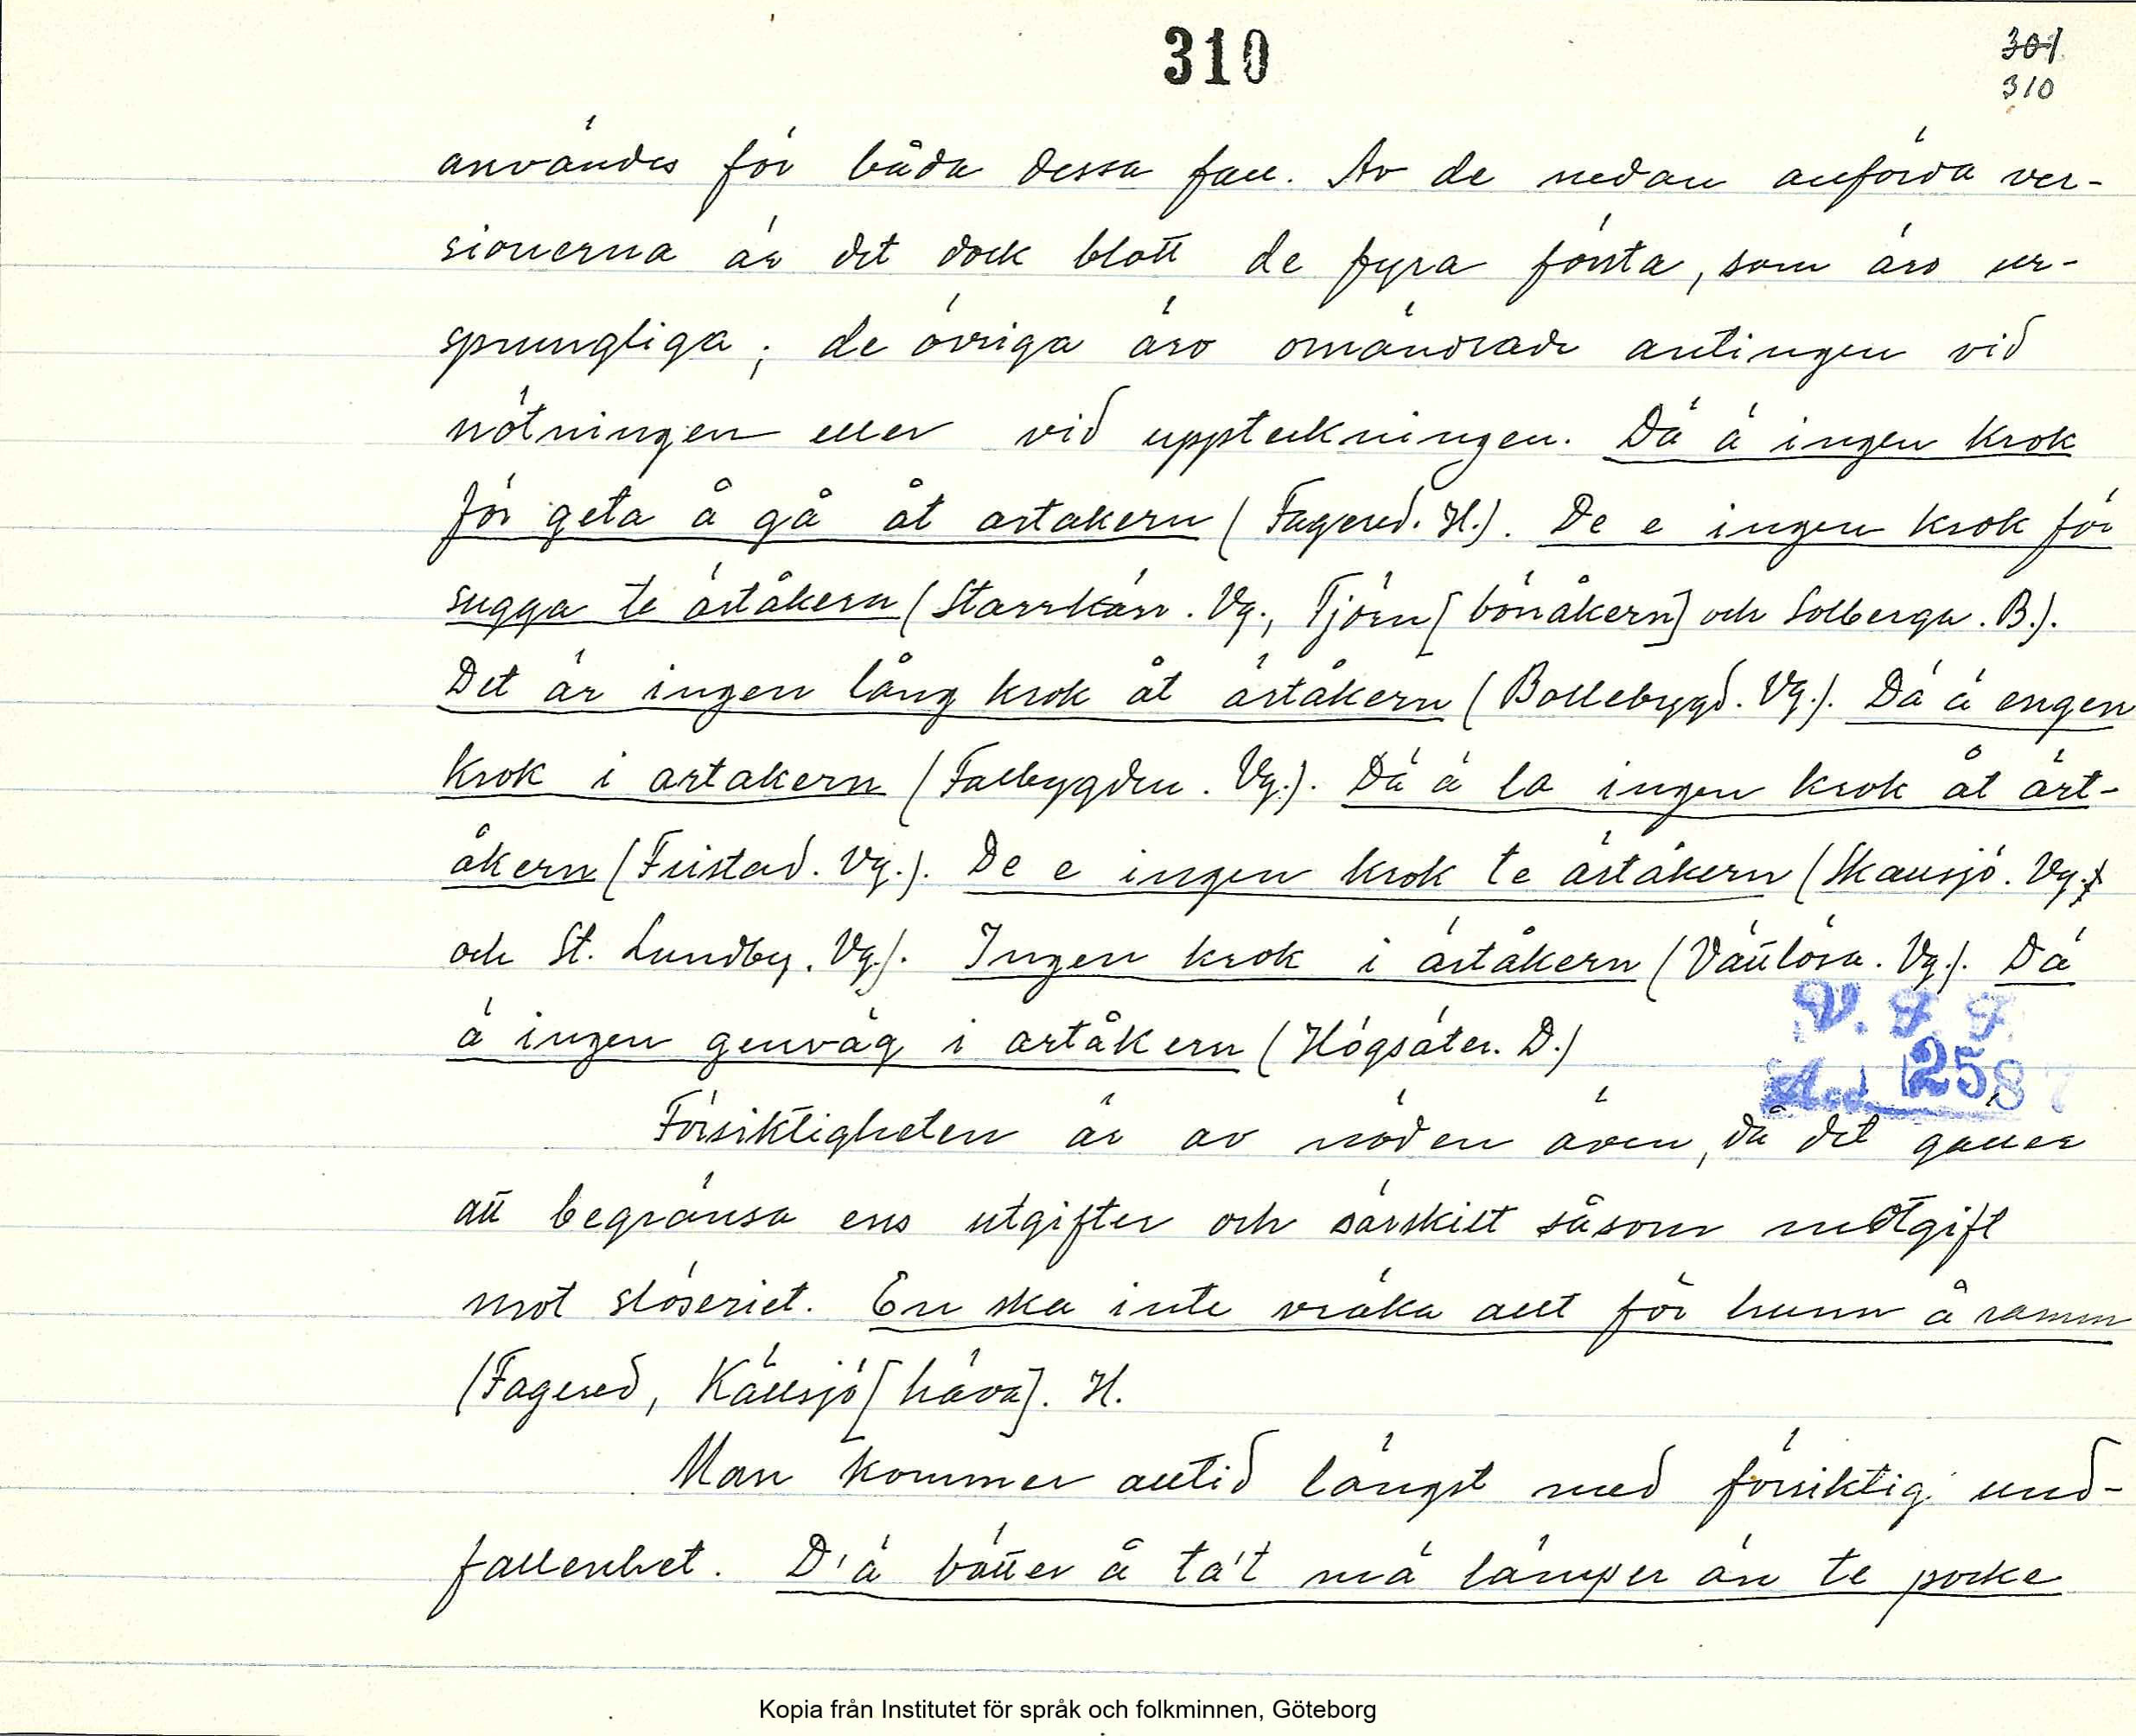 310
301
310
användes för båda dessa fall. Av de nedan anförda ver-
sionerna är det dock blott de fyra första, som äro ur-
sprungliga; de övriga äro omändrade antingen vid
nötningen eller vid uppteckningen. Dä ä ingen krok
för geta å gå åt artakern (Fagered. H.). De e ingen krok för
sugga te ärtåkern (Starrkärr. Vg., Tjörn [bönåkern] och Solberga. B.).
Det är ingen lång krok åt ärtåkern (Bollebygd. Vg.). Dä ä engen
krok i artakern (Falbygden. Vg.). Dä ä la ingen krok åt ärt-
åkern (Fristad. Vg.). De e ingen krok te ärtåkern (Skallsjö. Vg.
och St. Lundby. Vg.). Ingen krok i ärtåkern (Vättlösa. Vg.). Dä
ä ingen genväg i artåkern (Högsäter. D.)
V. F. F.
Acc 1258
Försiktigheten är av nöden även, då det gäller
att begränsa ens utgifter och särskilt såsom motgift
mot slöseriet. En ska inte vräka allt för hunn å ramm
(Fagered, Källsjö [häva]. H.
Man kommer alltid längst med försiktig und-
fallenhet. D'ä bätter å ta't mä lämper än te pocke
Kopia från Institutet för språk och folkminnen, Göteborg